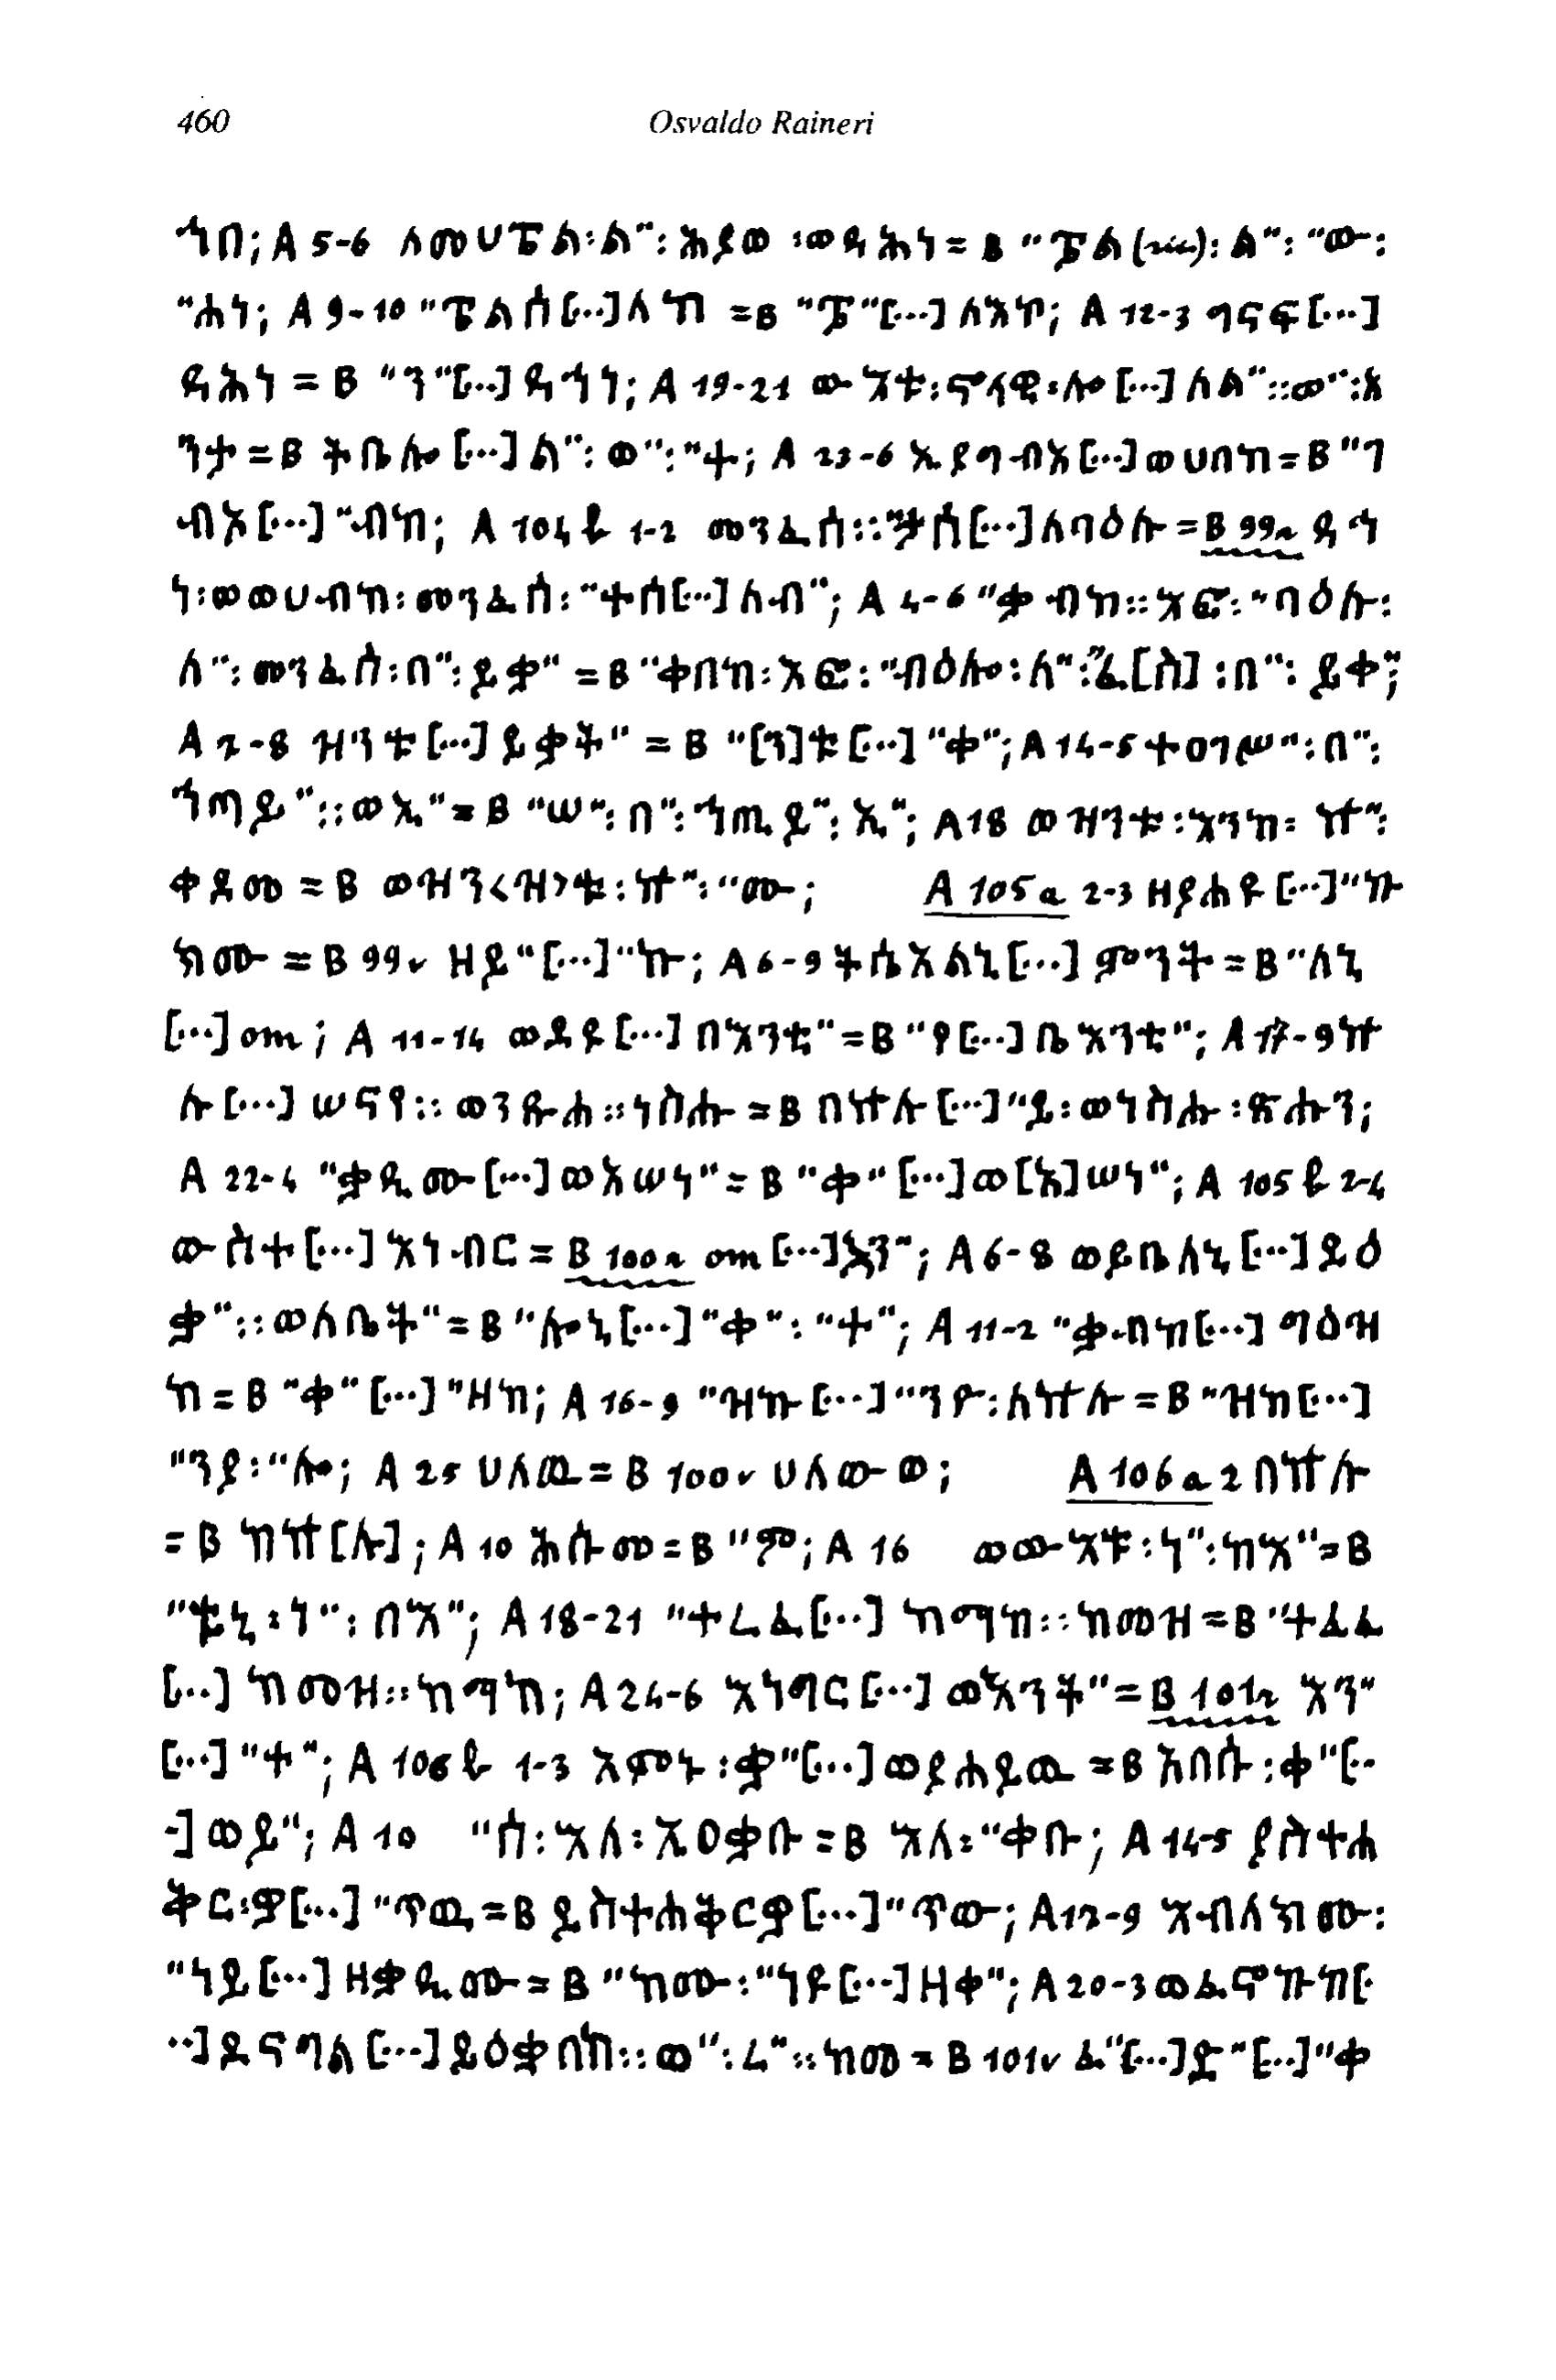 460 Osvaldo Raineri
ኀበ; A 5-6 ለመሀፔል፡ል"፡ ሕያወ ፡ወዳሕነ = B "ፔል (sic)፡ ል"፡ "ው፡
"ሐነ; A 9-10 "ፔልሰ[...]ለ = B "ፔ"[...] ለእ; A 12-3 ግናፍ[...]
ዳሕነ = B "ን"[...] ዳኅነ; A 19-21 ው እቱ፡ኖላዊ፡ሎ [...] ለል"።ወ"፡እ
ንታ = B ትቤሎ [...] ል"፡ ወ"፡ "ተ; A 23-6 ኢያግብአ[...]ወሀበከ = B "ገ
ብአ [...] "ብከ; A 104 b 1-2 መንፈሰ። [...]ለባዕሉ = B 99r ዳኅ
ነ፡ወወሀብከ፡መንፈሰ፡ "ተሰ[...] ለብ"; A 4-6 "ቃብከ። እፎ፡ "ባዕሉ፡
ለ"፡ መንፈሰ፡በ"፡ይቃ" = B "ቀበከ፡እፎ፡ "ብዕሎ፡ለ"፡"ፈ[ስ] ፡በ"፡ ይቀ";
A 7-8 ዝንቱ [...] ይቃት" = B "[ን]ቱ [...] "ቀ"; A 14-5 ተዐገሠ"፡ በ"፡
ኀጣይ"።ወኢ" = B "ሠ"፡ በ"፡ኀጢይ"፡ ኢ"; A 18 ወዝንቱ፡እንከ፡ ኵ"፡
ቀደመ = B ወዝን<ዝ>ቱ፡ኵ"፡ "ሙ; A 105 a 2-3 ዘያሐዩ [...]"ኩ
ክሙ = B 99v ዘይ" [...]"ኩ; A 6-9 ትሴአልኒ [...] ምንት = B "ለኒ
[...] om; A 11-14 ወደዩ [...] በእንቲ" = B "የ [...] ቤእንቲ"; A 17-9 ኵ
ሉ [...] ሠናየ። ወንጹሐ።ነስሑ = B በኵሉ [...] "ይ፡ወነስሑ፡ጽሑን;
A 22-4 "ቃዲሙ [...] ወአሠነ" = B "ቀ" [...] ወ[አ]ሠነ"; A 105 b 2-4
ውስተ [...] እነብር = B 100r om [...]እን"; A 6-8 ወይቤለኒ [...] ይዕ
ቃ"።ወለቤት" = B "ሎኒ [...] "ቀ"፡ "ተ"; A 11-2 "ቃብከ[...] ግዕዝ
ከ = B "ቀ" [...] "ዘከ; A 16-9 "ዝኩ [...] "ንዮ፡ለኵሉ = B "ዝከ [...]
"ንያ፡ "ሎ; A 25 ሀለዉ = B 100v ሀለው ወ; A 106 a 2 በኵሉ
= B ከኵ [ሉ]; A 10 ሕሱመ = B "ም; A 16 ወውእቱ፡ነ"፡ከእ" = B
"ቱኒ፡ነ"፡ በእ"; A 18-21 "ተረፈ [...] ከማከ።ከመዝ = B "ተፈፈ
[...] ከመዝ።ከማከ; A 24-6 እነግር [...] ወእንት" = B 101r እን"
[...] "ተ"; A 106 b 1-3 እምኑ፡ቃ" [...] ወያሐይዉ = B አበሱ፡ቀ" [..
.] ወይ"; A 10 "ሰ፡እለ፡ኢዐቃቡ = B እለ፡ "ቀቡ; A 14-5 ያስተሐ
ቅር፡ቃ[...] "ጥዉ = B ይስተሐቅርቃ[...] "ጥው; A 17-9 እብለክሙ፡
"ነይ [...] ዘቃዲሙ = B "ከሙ፡ "ነዩ [...] ዘቀ"; A 20-3 ወፈኖኩከ[.
..] ደናግል [...] ይዕቃበከ። ወ"፡ረ"።ከመ = B 101v ፈ"[...]ድ"[...]"ቀ